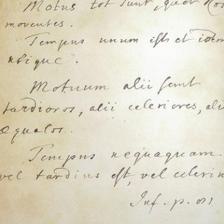 Motus tot sunt, quot
moventes.
Tempus unum est et idem
ubique.
Motuum alii sunt
tardiores, alii celeriores, alii
æquales.
Tempus nequaquam
vel tardius est, vel celerius
Inf. p.